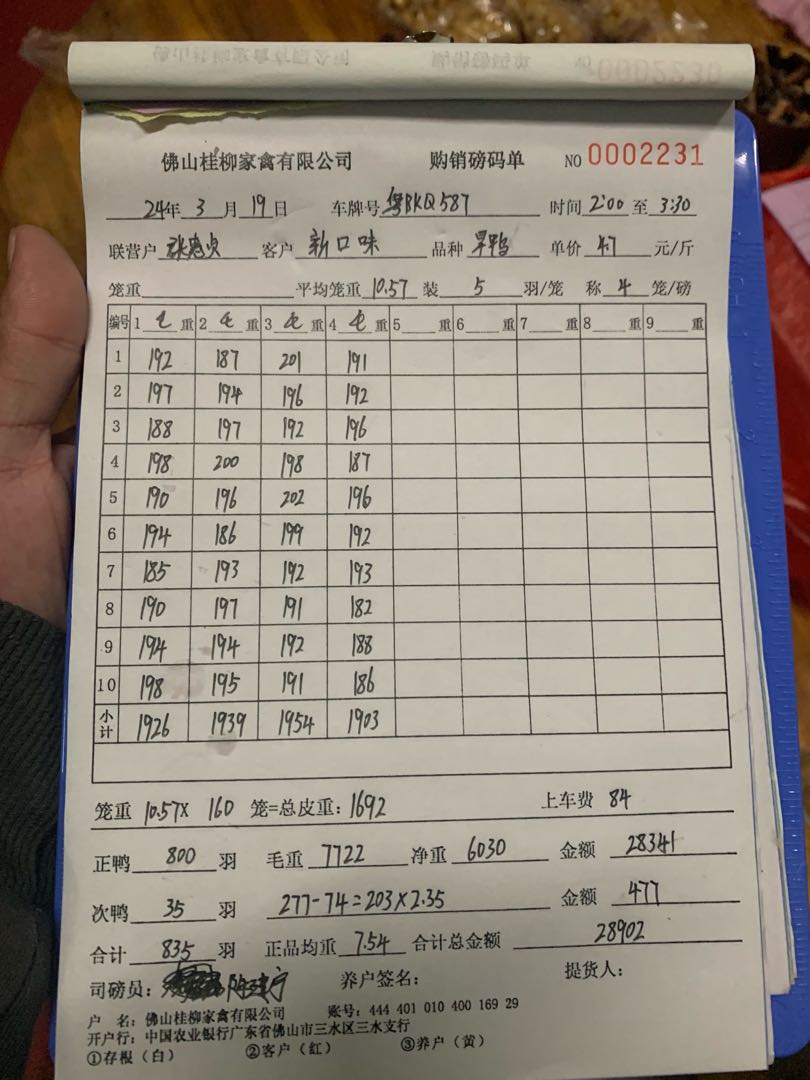 0002230
佛山桂柳家禽有限公司 购销磅码单 NO 0002231
24年 3 月 19 日 车牌号 粤BKQ587 时间 2:00 至 3:30
联营户 客户 新口味 品种 旱鸭 单价 4.7 元/斤
笼重 平均笼重 10.57 装 5 羽/笼 称 4 笼/磅
编号 1 毛 重 2 毛 重 3 毛 重 4 毛 重 5 重 6 重 7 重 8 重 9 重
1 192 187 201 191
2 197 194 196 192
3 188 197 192 196
4 198 200 198 187
5 190 196 202 196
6 194 186 199 192
7 185 193 192 193
8 190 197 191 182
9 194 194 192 188
10 198 195 191 186
小计 1926 1939 1954 1903
笼重 10.57X 160 笼=总皮重：1692 上车费 84
正鸭 800 羽 毛重 7722 净重 6030 金额 28341
次鸭 35 羽 277-74=203×2.35 金额 477
合计 835 羽 正品均重 7.54 合计总金额 28902
司磅员： 养户签名： 提货人：
户 名：佛山桂柳家禽有限公司 账号：444 401 010 400 169 29
开户行：中国农业银行广东省佛山市三水区三水支行
①存根（白） ②客户（红） ③养户（黄）